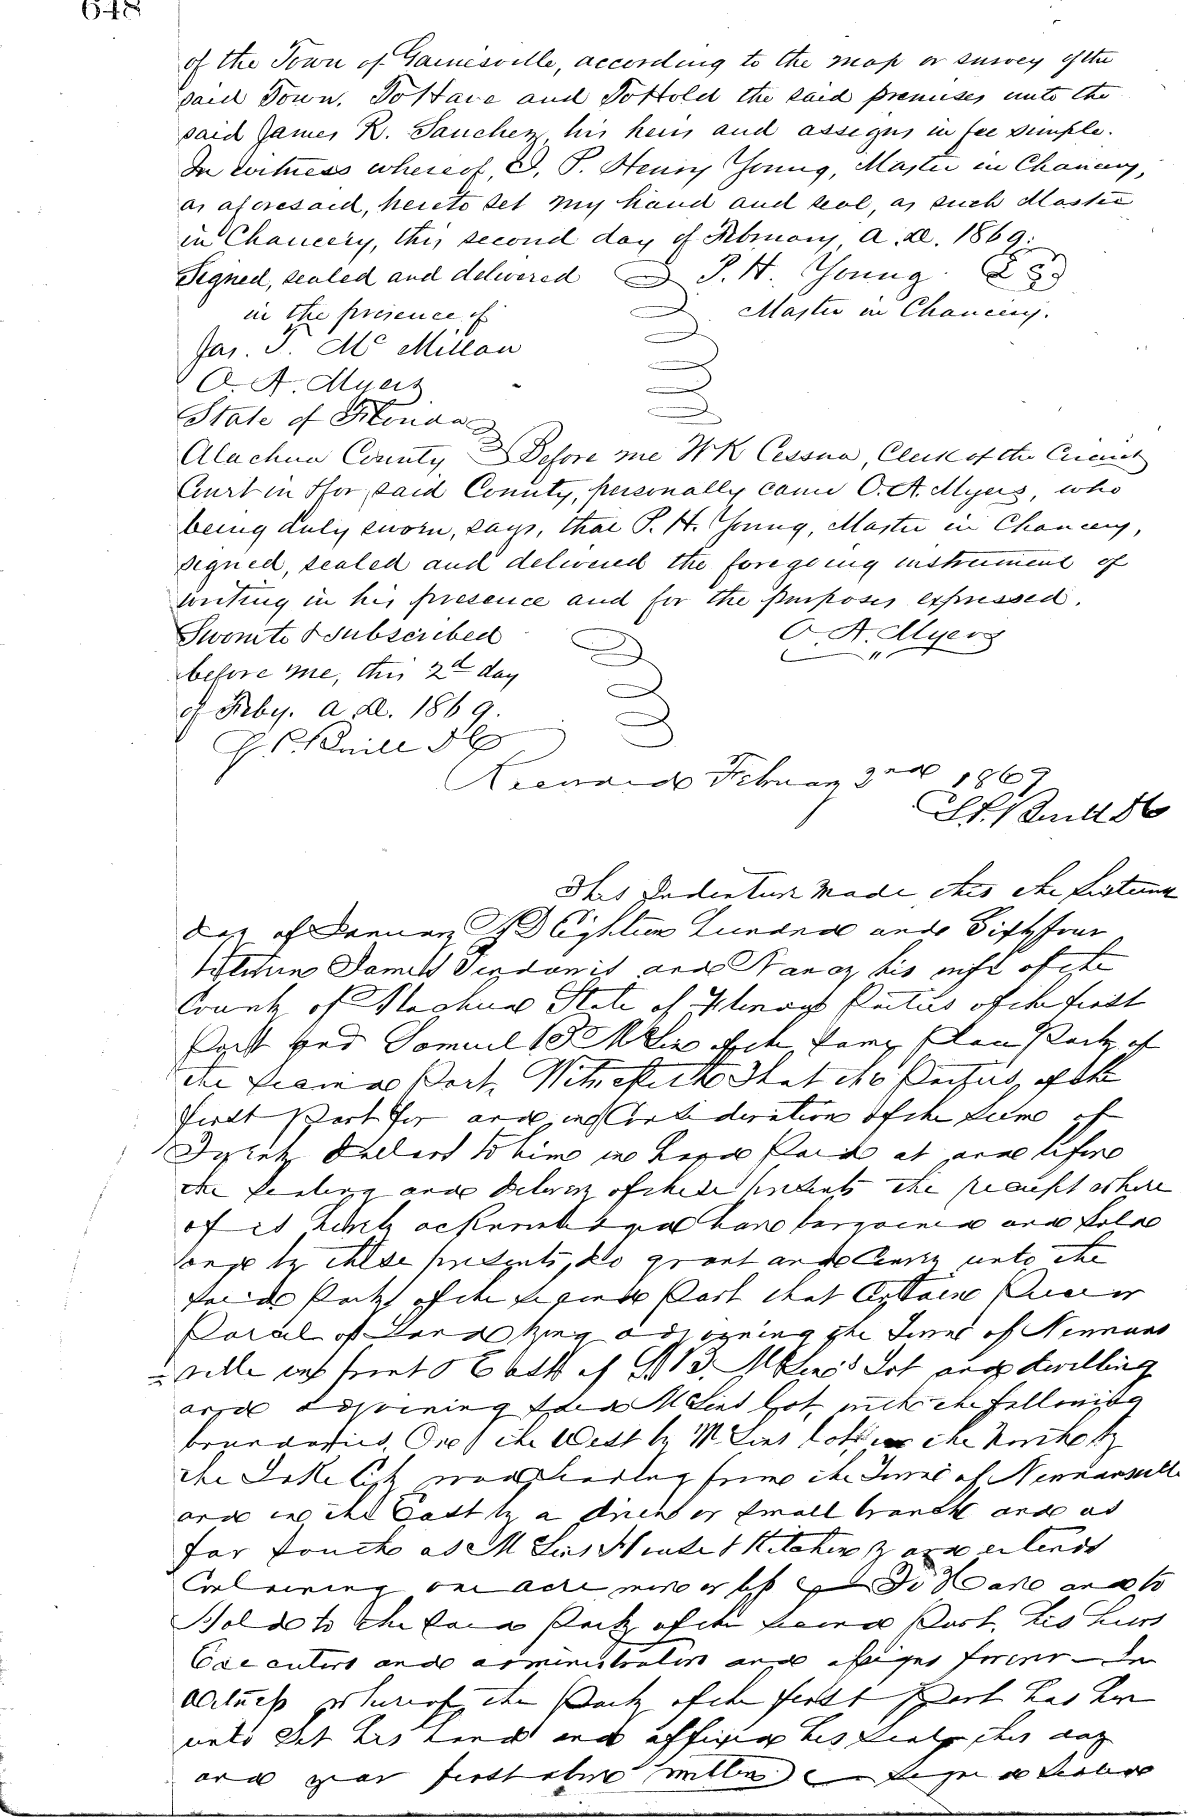 648
of the Town of Gainesville, according to the map or survey of the
said Town. To Have and To Hold the said premises unto the
said James R. Sanchez, his heirs and assigns in fee simple.
In witness whereof, I, P. Henry Young, Master in Chancery,
as aforesaid, hereto set my hand and seal, as such Master
in Chancery, this second day of February, A.D. 1869.
Signed, sealed and delivered P. H. Young. L S
in the presence of Master in Chancery.
Jas. T. McMillan
O. A. Myers
State of Florida
Alachua County Before me W K Cessna, Clerk of the Circuit
Court in & for said County, personally came O. A. Myers, who
being duly sworn, says, that P. H. Young, Master in Chancery,
signed, sealed and delivered the foregoing instrument of
writing in his presence and for the purposes expressed.
Sworn to & subscribed O. A. Myers
before me, this 2d day
of Feby. A.D. 1869.
February 2nd 1869
This Indenture made this the
day of January AD Eighteen hundred and Sixty four
between James and Nancy his wife of the
County of Alachua State of Florida Parties of the first
Part and Samuel B McLin of the same Place Party of
the second Part, Witnesseth That the Parties of the
first Part for and in Consideration of the sum of
Twenty Dollars to him in hand Paid at and before
the sealing and delivery of these presents the receipt where
of is hereby acknowledged have bargained and sold
and by these presents, do grant and Convey unto the
said Party of the second Part that Certain Piece or
Parcel of Land lying adjoining the Town of Newnans
ville in front & East of S. B. McLin's Lot and dwelling
and adjoining said McLins Lot, with the following
boundaries, On the West by McLins lot, on the North by
the Lake City road leading from the Town of Newnansville
and on the East by a drain or small branch and as
far South as McLins House & Kitchen and extends
Containing one acre more or less To Have and to
Hold to the said Party of the second Part, his heirs
Executors and administrators and assigns forever - In
Witness whereof the Party of the first Part has here
unto set his hand and affixed his seal, this day
and year first above written Signed Sealed